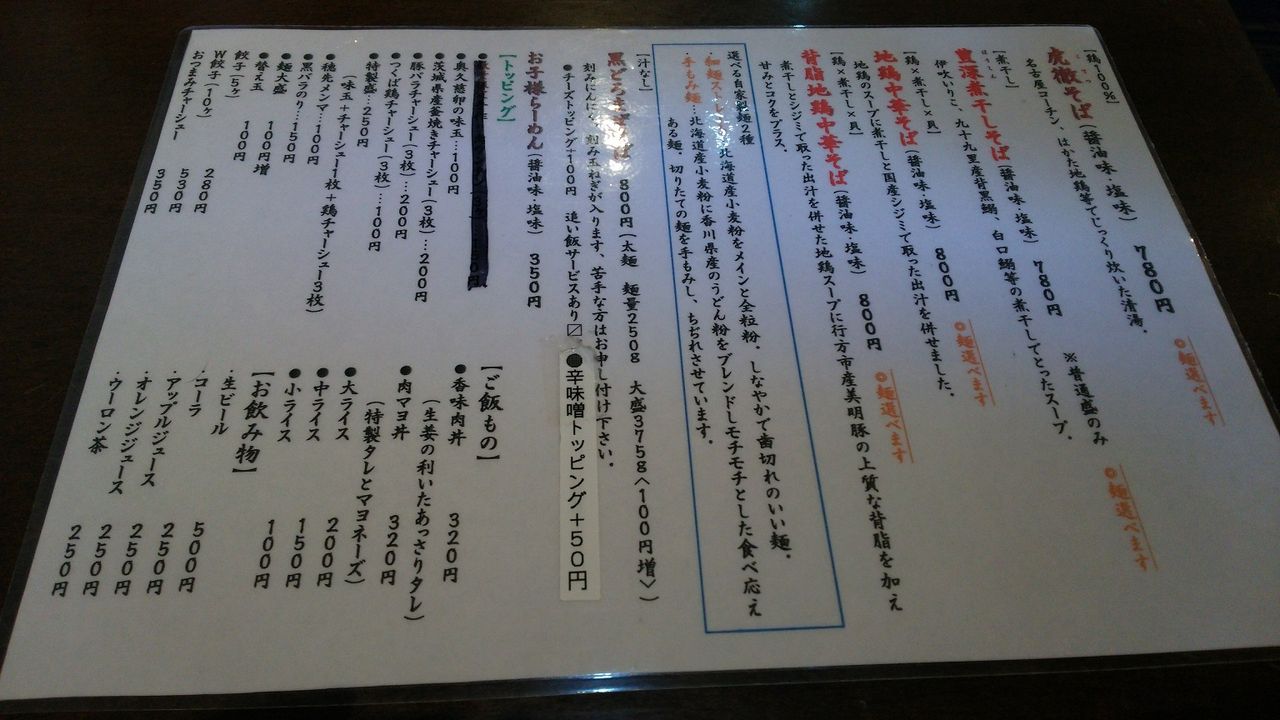 【鶏100%】
虎徹そば(醤油味・塩味) 780円 ◎麺選べます
名古屋コーチン、はかた地鶏等でじっくり炊いた清湯。
【煮干し】
豊潤煮干しそば(醤油味・塩味) 780円 ※普通盛のみ ◎麺選べます
伊吹いりこ、九十九里産背黒鰯、白口鰯等の煮干しでとったスープ。
【鶏×煮干し×貝】
地鶏中華そば(醤油味・塩味) 800円 ◎麺選べます
地鶏のスープに煮干しと国産シジミで取った出汁を併せました。
【鶏×煮干し×貝】
背脂地鶏中華そば(醤油味・塩味) 800円 ◎麺選べます
煮干しとシジミで取った出汁を併せた地鶏スープに行方市産美明豚の上質な背脂を加え
甘みとコクをプラス。
選べる自家製麺2種
・和麺ストレート 北海道産小麦粉をメインと全粒粉。しなやかで歯切れのいい麺。
・手もみ麺・北海道産小麦粉に香川県産のうどん粉をブレンドしモチモチとした食べ応え
ある麺、切りたての麺を手もみし、ちぢれさせています。
【汁なし】
黒どろまぜそば 800円(太麺 麺量250g 大盛375g<100円増>)
刻みにんにく、刻み玉ねぎが入ります、苦手な方はお申し付け下さい。
●チーズトッピング+100円 追い飯サービスあり〼 ●辛味噌トッピング+50円
お子様らーめん(醤油味・塩味) 350円
【トッピング】
●奥久慈卵の味玉…100円
●茨城県産釜焼きチャーシュー(3枚)…200円
●豚バラチャーシュー(3枚)…200円
●つくば鶏チャーシュー(3枚)…100円
●特製盛…250円
(味玉+チャーシュー1枚+鶏チャーシュー3枚)
●穂先メンマ…100円
●黒バラのり…150円
●麺大盛 100円増
●替え玉 100円
餃子(5ヶ) 280円
W餃子(10ヶ) 530円
おつまみチャーシュー 350円
【ご飯もの】
●香味肉丼 320円
(生姜の利いたあっさりタレ)
●肉マヨ丼 320円
(特製タレとマヨネーズ)
●大ライス 200円
●中ライス 150円
●小ライス 100円
【お飲み物】
・生ビール 500円
・コーラ 250円
・アップルジュース 250円
・オレンジジュース 250円
・ウーロン茶 250円